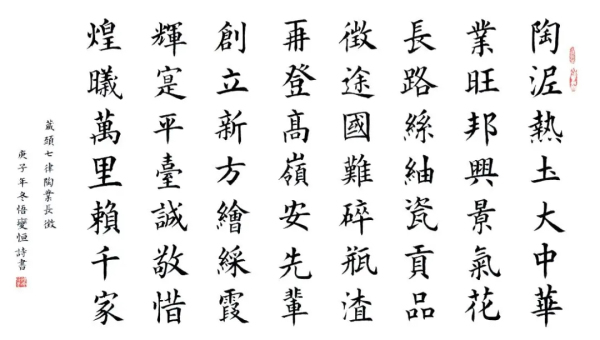 陶泥熱圡大中華
業旺邦興景氣花
長路絲紬瓷貢品
徵途國難碎瓶渣
再登髙嶺安先輩
創立新方繪綵霞
輝寔平臺誠敬惜
煌曦萬里賴千家
藏頭七律陶業長徵
庚子年冬悟變恒詩書